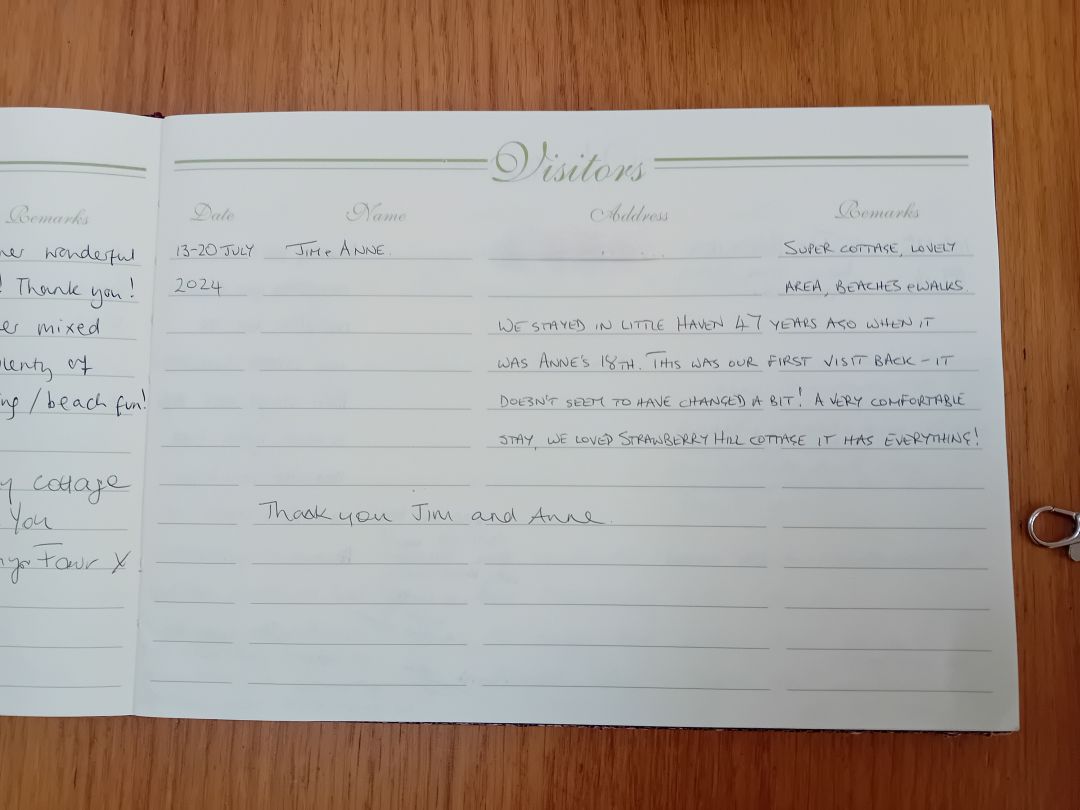 Remarks
wonderful
! Thank you!
mixed
of
/beach fun!
cottage
You
X
Visitors
Date Name Address Remarks
13-20 JULY JIM & ANNE. SUPER COTTAGE, LOVELY
2024 AREA, BEACHES & WALKS.
WE STAYED IN LITTLE HAVEN 47 YEARS AGO WHEN IT
WAS ANNE'S 18TH. THIS WAS OUR FIRST VISIT BACK - IT
DOESN'T SEEM TO HAVE CHANGED A BIT! A VERY COMFORTABLE
STAY, WE LOVED STRAWBERRY HILL COTTAGE IT HAS EVERYTHING!
Thank you Jim and Anne.